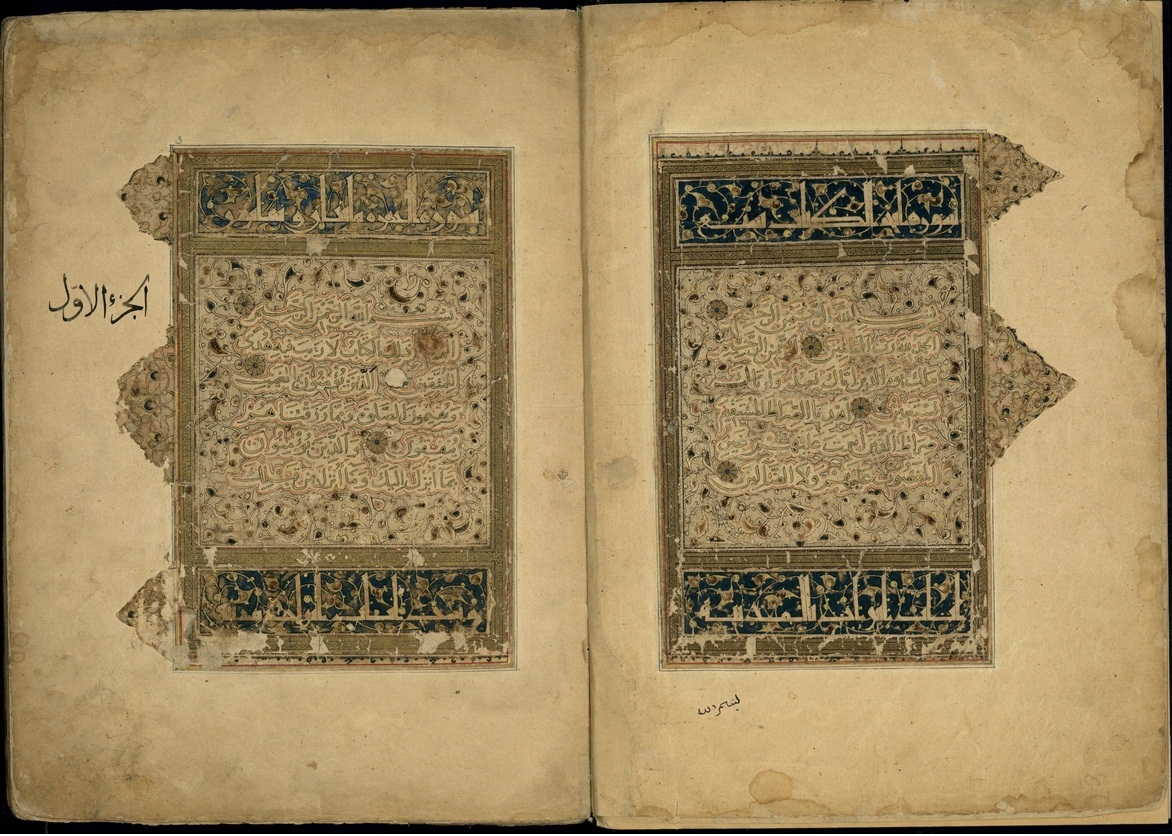 بسم الله الرحمن الرحيم
الحمد لله رب العالمين الرحمن الرحيم
ملك يوم الدين اياك نعبد واياك
نستعين اهدنا الصراط المستقيم
صراط الذين انعمت عليهم غير
المغضوب عليهم ولا الضالين
بسم الله
بسم الله الرحمن الرحيم
الم ذلك الكتاب لا ريب فيه هدى
للمتقين الذين يؤمنون بالغيب
ويقيمون الصلوة ومما رزقناهم
ينفقون والذين يؤمنون
بما انزل اليك وما انزل من قبلك
الجزء الاوّل